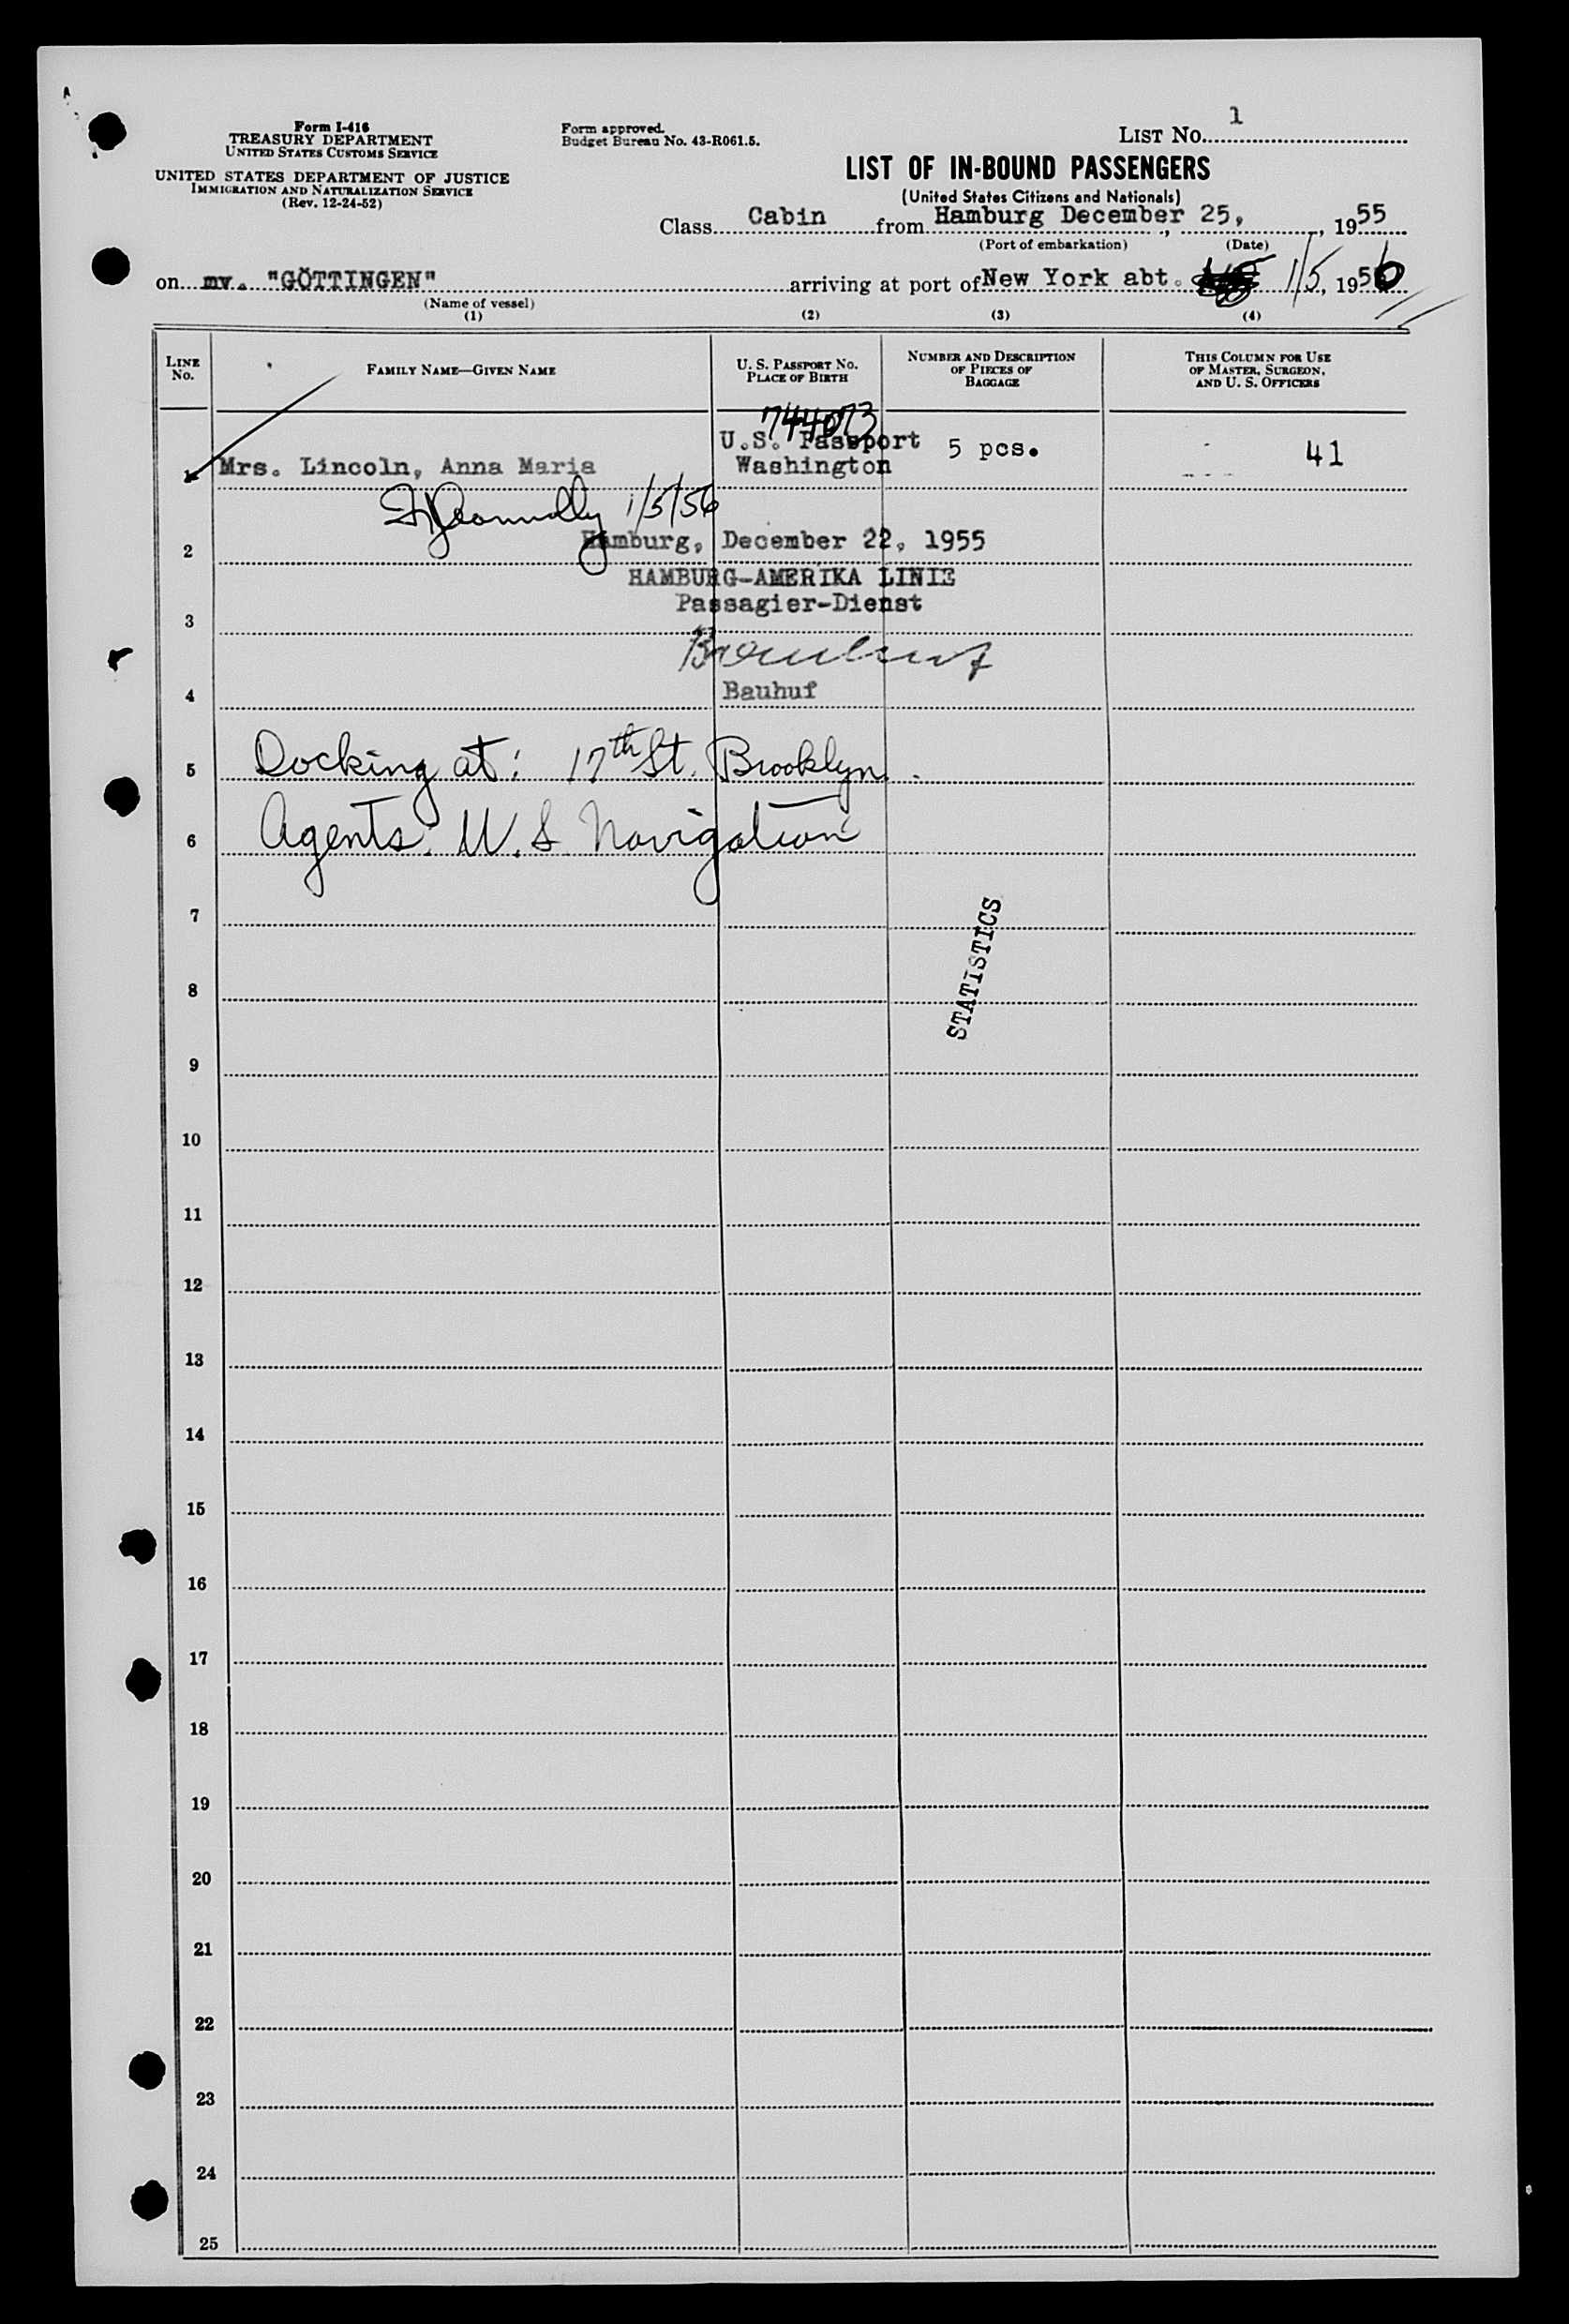 Form I-416
TREASURY DEPARTMENT
UNITED STATES CUSTOMS SERVICE
UNITED STATES DEPARTMENT OF JUSTICE
IMMIGRATION AND NATURALIZATION SERVICE
(Rev. 12-24-52)
Form approved.
Budget Bureau No. 43-R061.5.
LIST No. 1
LIST OF IN-BOUND PASSENGERS
(United States Citizens and Nationals)
Class Cabin from Hamburg December 25, , 1955
(Port of embarkation) (Date)
on mv. "GÖTTINGEN" arriving at port of New York abt. 1/5, 1956
(Name of vessel)
(1) (2) (3) (4)
LINE No. FAMILY NAME—GIVEN NAME U. S. PASSPORT NO. PLACE OF BIRTH NUMBER AND DESCRIPTION OF PIECES OF BAGGAGE THIS COLUMN FOR USE OF MASTER, SURGEON, AND U. S. OFFICERS
744073
U.S. Passport
1 Mrs. Lincoln, Anna Maria Washington 5 pcs. 41
1/5/56
2 Hamburg, December 22, 1955
HAMBURG-AMERIKA LINIE
Passagier-Dienst
3
4 Bauhuf
5 Docking at: 17th St. Brooklyn.
6 Agents: U.S. Navigation
7
STATISTICS
8
9
10
11
12
13
14
15
16
17
18
19
20
21
22
23
24
25